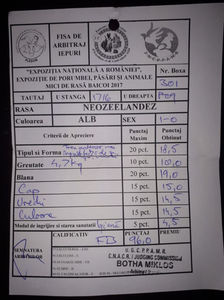 FISA DE
ARBITRAJ
IEPURI
"EXPOZIȚIA NAȚIONALĂ A ROMÂNIEI",
EXPOZITIE DE PORUMBEI, PĂSĂRI ȘI ANIMALE
MICI DE RASĂ BAICOI 2017
Nr. Boxa
301
TATUAJ U STANGA 1716 U DREAPTA R09
RASA NEOZEELANDEZ
Culoarea ALB SEX 1-0
Criterii de Apreciere Punctaj Maxim Punctaj Obtinut
Tipul si Forma 20 pct. 18,5
Greutate 4,7kg 10 pct. 10,0
Blana 20 pct. 19,0
Cap 15 pct. 15,0
Urechi 15 pct. 14,5
Culoare 15 pct. 14,5
Modul de ingrijire si starea sanatatii 5 pct. 4,5
SEMNATURA ARBITRULUI
CALIFICATIV FB 96,0
U.G.C.P.P.A.M.R
C.N.A.C.R / JUDGING COMMISSION
BOTHA MIKLOS